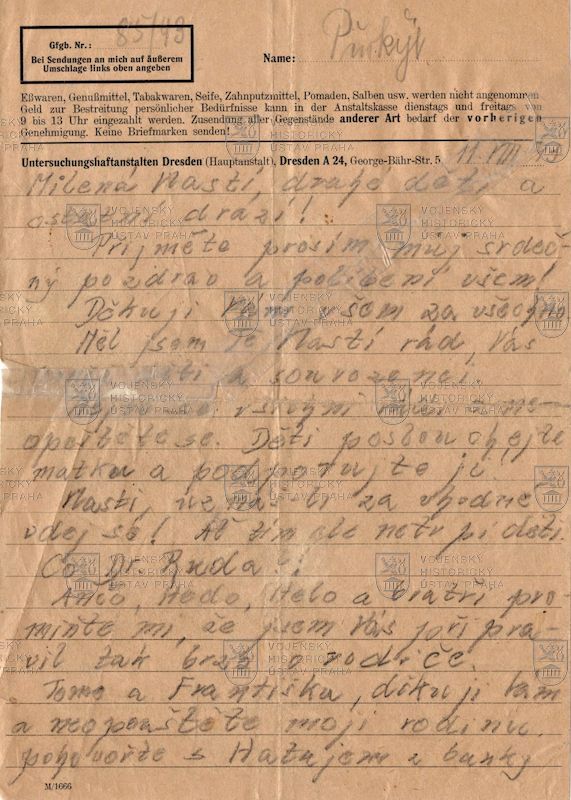 Gfgb. Nr.: 85/43
Bei Sendungen an mich auf äußerem
Umschlage links oben angeben
Name:
Eßwaren, Genußmittel, Tabakwaren, Seife, Zahnputzmittel, Pomaden, Salben usw. werden nicht angenommen
Geld zur Bestreitung persönlicher Bedürfnisse kann in der Anstaltskasse dienstags und freitags von
9 bis 13 Uhr eingezahlt werden. Zusendung aller Gegenstände anderer Art bedarf der vorherigen
Genehmigung. Keine Briefmarken senden!
Untersuchungshaftanstalten Dresden (Hauptanstalt), Dresden A 24, George-Bähr-Str. 5
Milená Vlastí, drahé děti a
ostatní drazí!
Přijměte prosím můj srdeč-
ný pozdrav a políbení všem!
Děkuji Vám všem za všechno
Měl jsem Tě Vlastí rád, Vás
děti a sourozence.
ne-
opouštějte se. Děti poslouchejte
matku a podporujte ji.
Vlasti, za vhodné
vdej se! Ať tím ale netrpí děti.
Co Dr Buda
a bratři pro-
miňte mi, že jsem Vás připra-
vil tak brzo o rodiče.
Tomo a Františku, děkuji Vám
a neopouštějte moji rodinu.
pohovořte s z banky
M/1666
VOJENSKÝ
HISTORICKÝ
ÚSTAV PRAHA